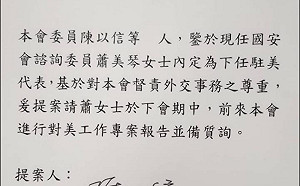 本會委員陳以信等　人，鑒於現任國安
會諮詢委員蕭美琴女士內定為下任駐美
代表，基於對本會督責外交事務之尊重，
爰提案請蕭女士於下會期中，前來本會
進行對美工作專案報告並備質詢。
提案人：